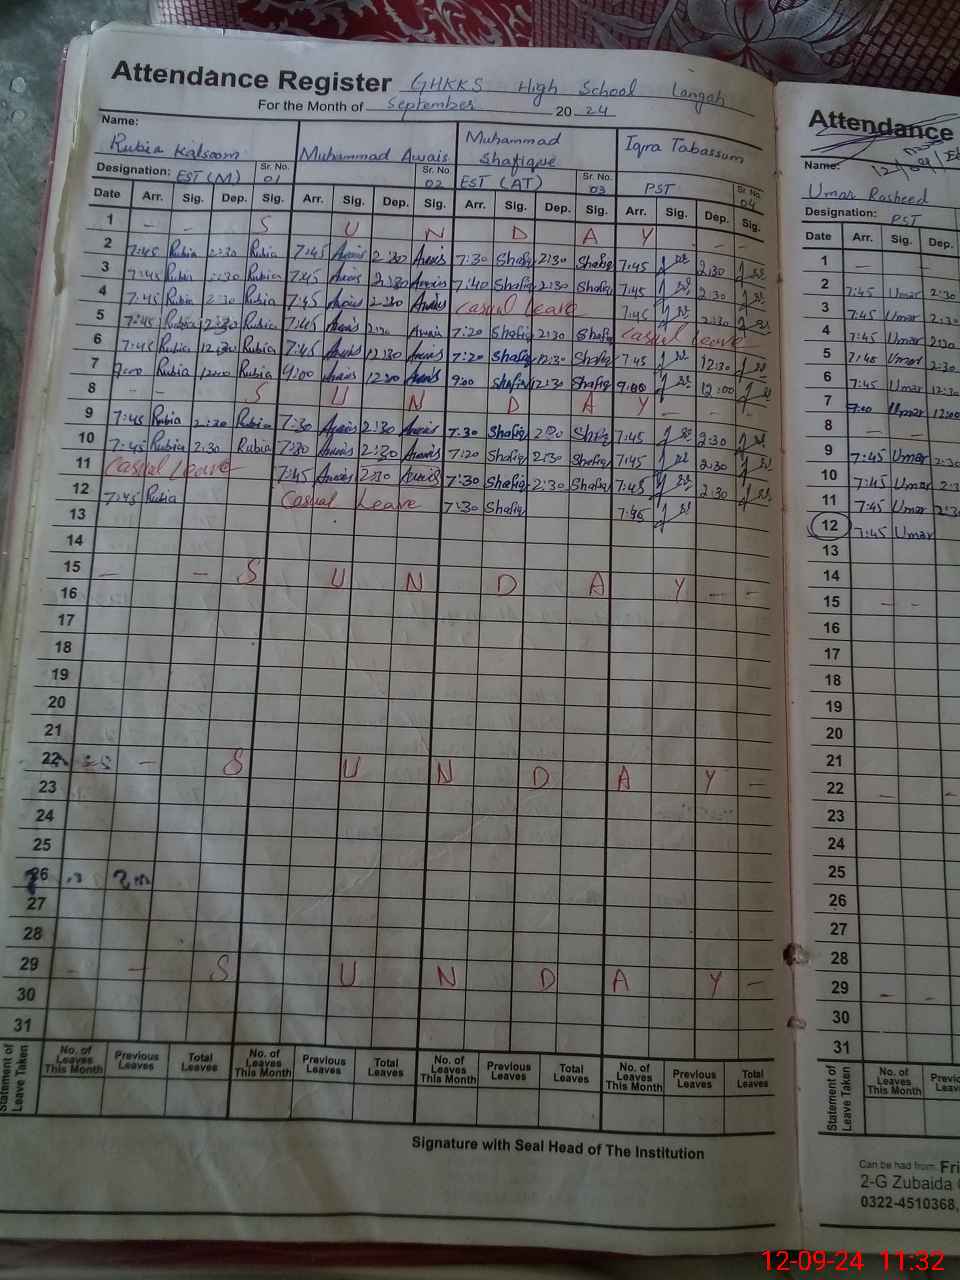 Attendance Register GHKKS High School Langah
For the Month of September 2024
Name: Rubia Kalsoom Muhammad Awais Muhammad Shafique Iqra Tabassum
Designation: EST (M) Sr. No. 01 Sr. No. 02 EST (AT) Sr. No. 03 PST Sr. No. 04
Date Arr. Sig. Dep. Sig. Arr. Sig. Dep. Sig. Arr. Sig. Dep. Sig. Arr. Sig. Dep. Sig.
1 - - S U N D A Y - - -
2 7:45 Rubia 2:30 Rubia 7:45 Awais 2:30 Awais 7:30 Shafiq 2:30 Shafiq 7:45 2:30
3 7:45 Rubia 2:30 Rubia 7:45 Awais 2:30 Awais 7:40 Shafiq 2:30 Shafiq 7:45 2:30
4 7:45 Rubia 2:30 Rubia 7:45 Awais 2:30 Awais Casual Leave 7:45 2:30
5 7:45 Rubia 2:30 Rubia 7:45 Awais 2:30 Awais 7:20 Shafiq 2:30 Shafiq Casual Leave
6 7:45 Rubia 12:30 Rubia 7:45 Awais 12:30 Awais 7:20 Shafiq 12:30 Shafiq 7:45 12:30
7 Rubia 12:00 Rubia 9:00 Awais 12:00 Awais 9:00 Shafiq 12:30 Shafiq 9:00 12:00
8 - - S U N D A Y - - -
9 7:45 Rubia 2:30 Rubia 7:30 Awais 2:30 Awais 7:30 Shafiq 2:30 Shafiq 7:45 2:30
10 7:45 Rubia 2:30 Rubia 7:30 Awais 2:30 Awais 7:20 Shafiq 2:30 Shafiq 7:45 2:30
11 Casual Leave 7:45 Awais 2:30 Awais 7:30 Shafiq 2:30 Shafiq 7:45 2:30
12 7:45 Rubia Casual Leave 7:30 Shafiq 7:45
13
14
15 - - S U N D A Y - -
16
17
18
19
20
21
22 - S U N D A Y -
23
24
25
26
27
28
29 - - S U N D A Y -
30
31
Statement of Leave Taken
No. of Leaves This Month Previous Leaves Total Leaves No. of Leaves This Month Previous Leaves Total Leaves No. of Leaves This Month Previous Leaves Total Leaves No. of Leaves This Month Previous Leaves Total Leaves
Signature with Seal Head of The Institution
Attendance
Name:
Umar Rasheed
Designation: PST
Date Arr. Sig. Dep.
1 - -
2 7:45 Umar 2:30
3 7:45 Umar 2:30
4 7:45 Umar 2:30
5 7:45 Umar 2:30
6 7:45 Umar 12:30
7 Umar 12:00
8 - -
9 7:45 Umar 2:30
10 7:45 Umar 2:30
11 7:45 Umar 2:30
12 7:45 Umar
13
14
15 - -
16
17
18
19
20
21
22 - -
23
24
25
26
27
28
29 - -
30
31
Statement of Leave Taken
No. of Leaves This Month
Can be had from: Fri
2-G Zubaida
0322-4510368,
12-09-24 11:32